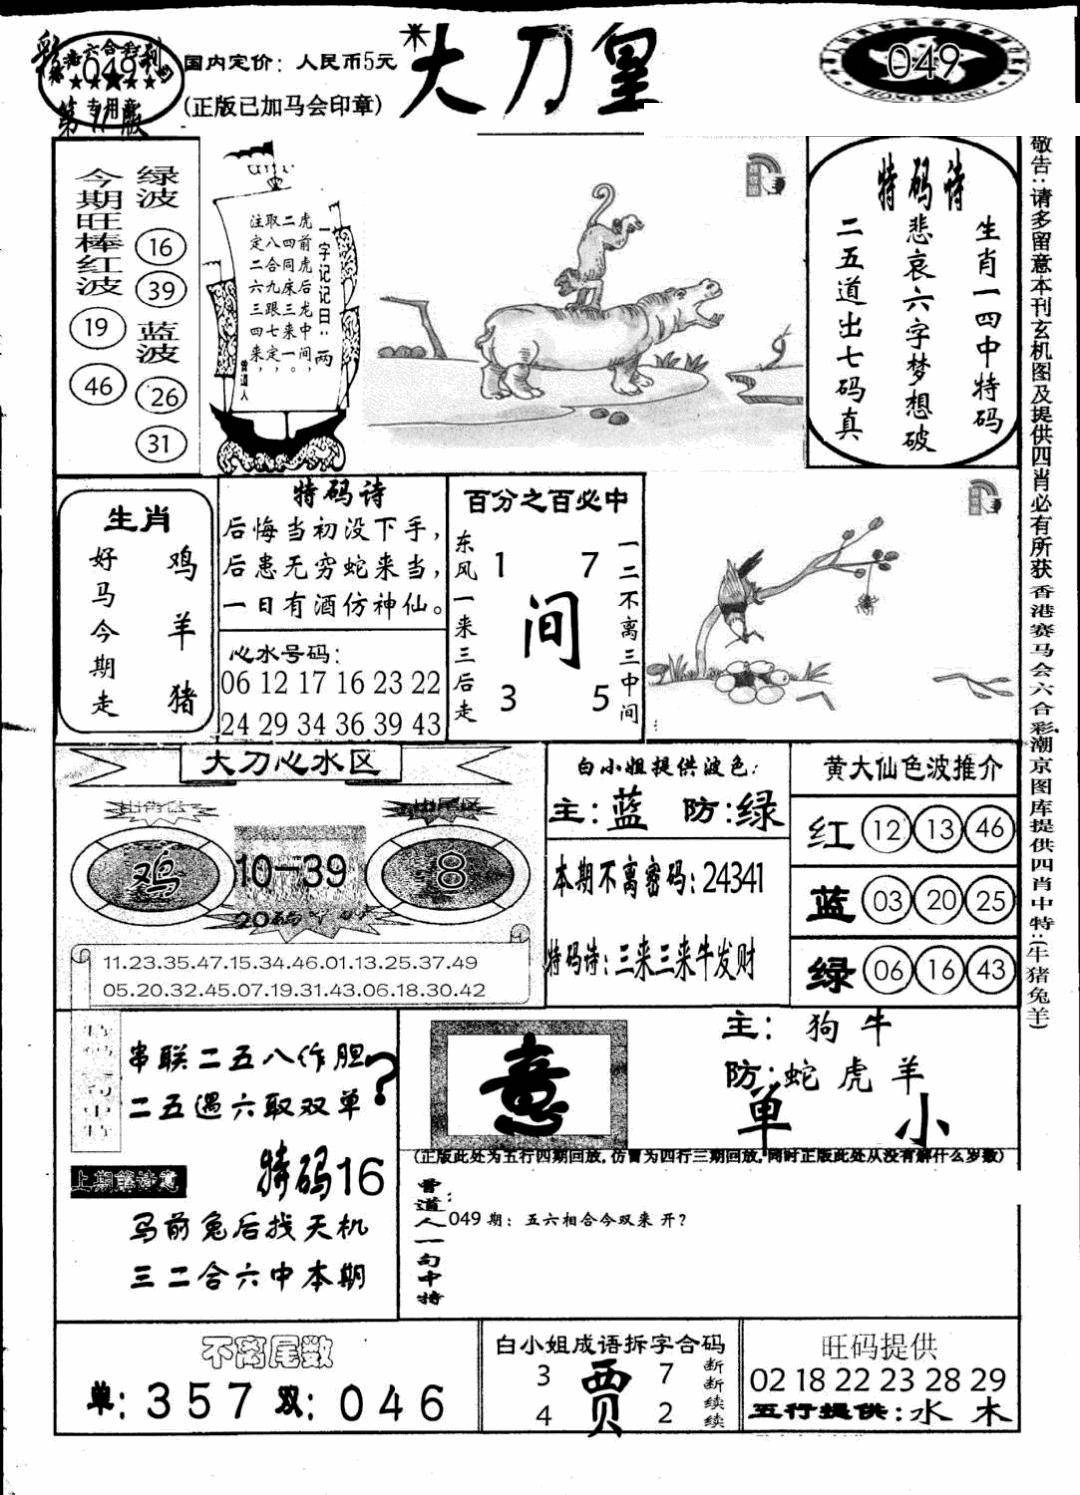 彩
六合彩
049
专用章
第11版
国内定价：人民币5元
(正版已加马会印章)
大刀皇
049
HONG KONG
绿波
今期旺棒红波
16
39
19
46
蓝波
26
31
一字记记曰：两
虎前虎后龙中间，
二四同床三来一。
取八合九跟七定，
注定二六三四来，
曾道人
特码诗
生肖一四中特码
悲哀六字梦想破
二五道出七码真
敬告：请多留意本刊玄机图及提供四肖必有所获
香港赛马会六合彩
潮京图库提供四肖中特：(牛猪兔羊)
生肖
好马今期走
鸡羊猪
特码诗
后悔当初没下手，
后患无穷蛇来当，
一日有酒仿神仙。
心水号码：
06 12 17 16 23 22
24 29 34 36 39 43
百分之百必中
东风一来三后走
1 7
间
3 5
一二不离三中间
大刀心水区
鸡
10-39
20码
8
11.23.35.47.15.34.46.01.13.25.37.49
05.20.32.45.07.19.31.43.06.18.30.42
白小姐提供波色：
主：蓝 防：绿
本期不离密码：24341
特码诗：三来三来牛发财
黄大仙色波推介
红 12 13 46
蓝 03 20 25
绿 06 16 43
串联二五八作胆
二五遇六取双单
?
特码16
上期解诗意
马前兔后找天机
三二合六中本期
意
主：狗牛
防：蛇虎羊
单 小
(正版此处为五行四期回放，仿冒为四行三期回放，同时正版此处从没有解什么岁数)
曾道人一句中特：
049期：五六相合今双来 开？
不离尾数
单：357 双：046
白小姐成语拆字合码
3 7
贾
4 2
断断续续
旺码提供
02 18 22 23 28 29
五行提供：水 木